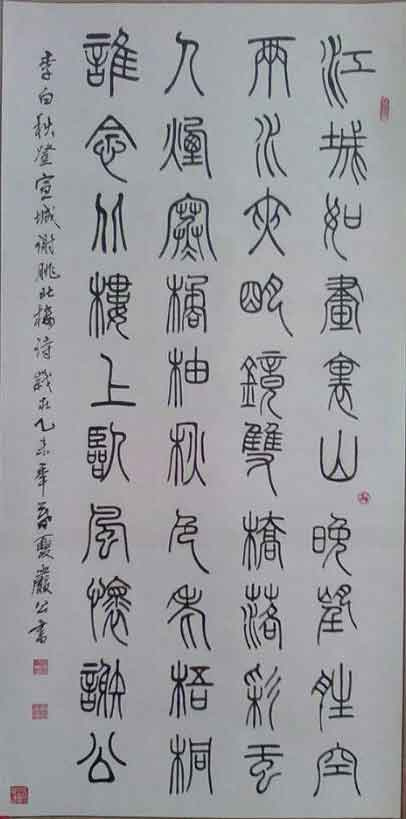 江城如畫裏山晚望晴空
兩水夾明鏡雙橋落彩虹
人煙寒橘柚秋色老梧桐
誰念北樓上臨風懷謝公
李白秋登宣城謝朓北樓詩歲在乙未年春夏嚴公書